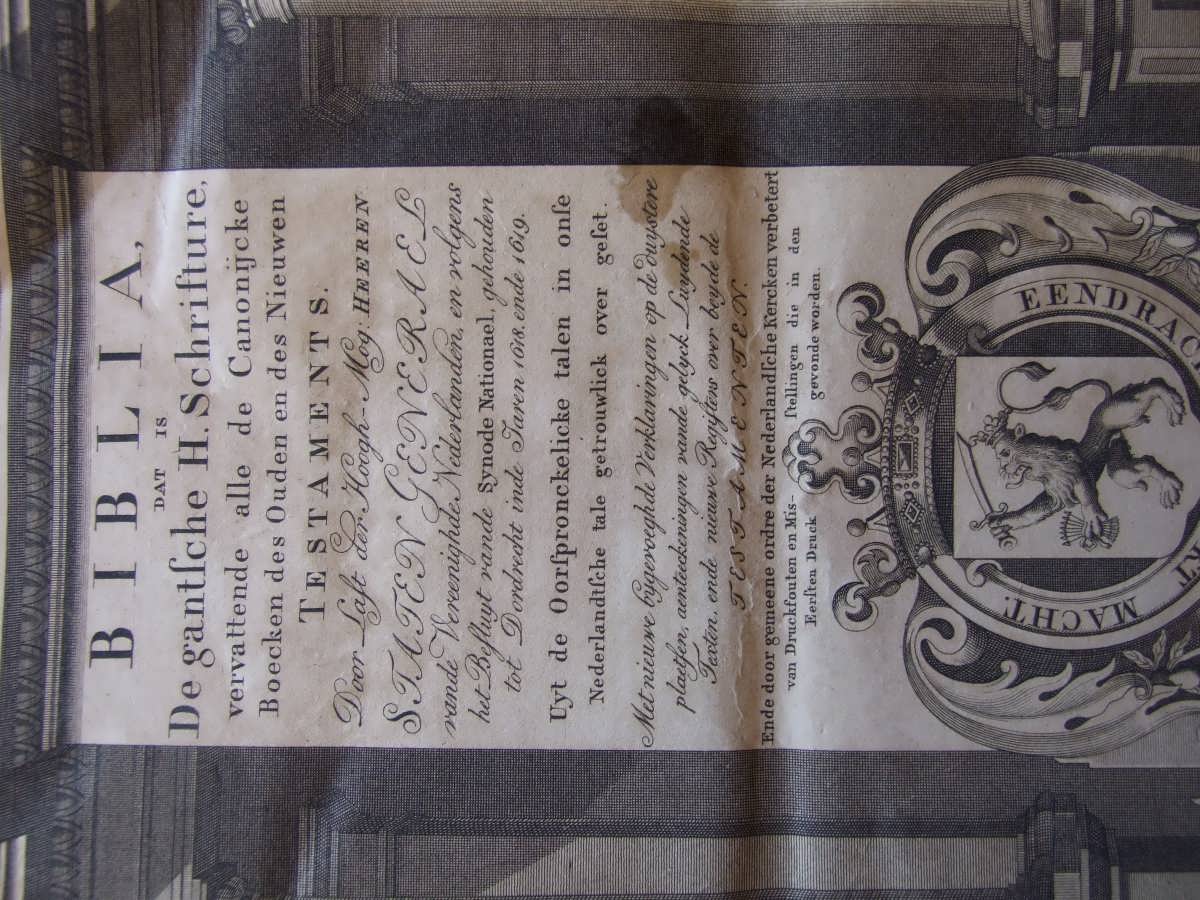 BIBLIA,
DAT IS
De gantſche H. Schrifture,
vervattende alle de Canonijcke
Boecken des Ouden en des Nieuwen
TESTAMENTS.
Door Laſt der Hoogh-Mog: HEEREN
STATEN GENERAEL
vande Vereenighde Nederlanden, en volgens
het Beſluyt vande Synode Nationael, gehouden
tot Dordrecht inde Jaren 1618. ende 1619.
Uyt de Oorſpronckelicke talen in onſe
Nederlandtſche tale getrouwlick over geſet.
Met nieuwe bygevoeghde Verklaringen op de duystere
plaetſen, aenteeckeningen vande gelyck Luydende
Texten, ende nieuwe Regiſters over beyde de
TESTAMENTEN.
Ende door gemeene ordre der Nederlandſche Kercken verbetert
van Druckfouten en Mis- ſtellingen die in den
Eerſten Druck gevonde worden.
EENDRAC
ET
MACHT.